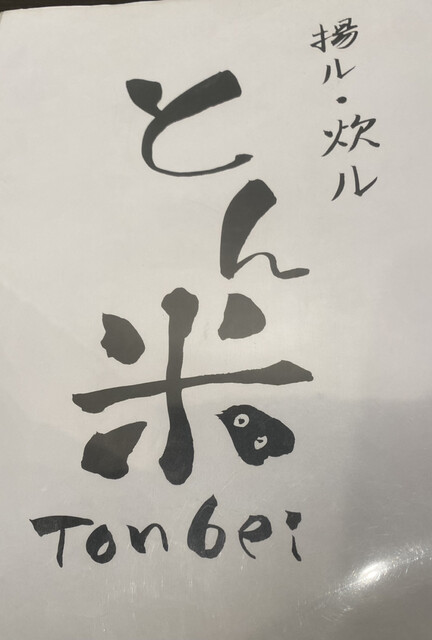 揚ル・炊ル
とん米
Tonbei